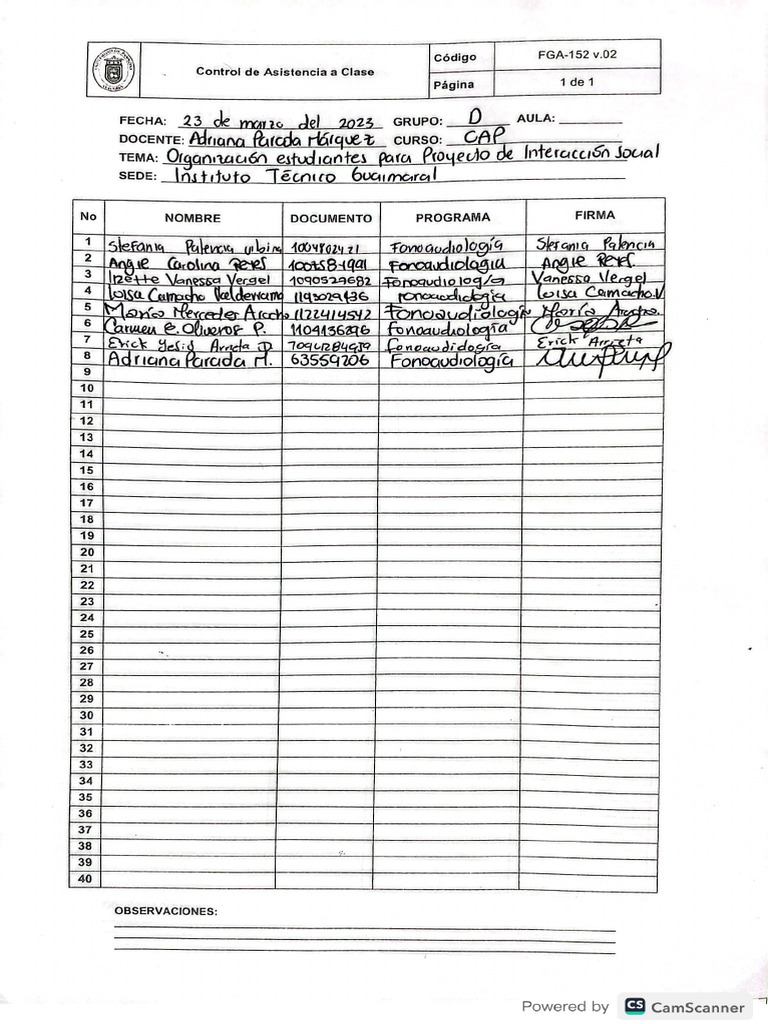 Control de Asistencia a Clase
Código FGA-152 v.02
Página 1 de 1
FECHA: 23 de marzo del 2023 GRUPO: D AULA:
DOCENTE: Adriana Parada Márquez CURSO: CAP
TEMA: Organización estudiantes para Proyecto de Interacción Social
SEDE: Instituto Técnico Guaimaral
No NOMBRE DOCUMENTO PROGRAMA FIRMA
1 Stefania Palencia Fonoaudiología Stefania Palencia
2 Angie Carolina Reyes Fonoaudiologia Angie Reyes.
3 Vanessa Vergel 1090529682 Fonoaudiología Vanessa Vergel
4 Loisa Camacho Valderrama 1193029436 Fonoaudiología Loisa Camacho.V
5 María Mercedes 1122414542 Fonoaudiología María
6 Carmen e. Oliveros P. 1104136296 Fonoaudiología
7 Erick Yesid Arrieta Fonoaudiología Erick Arrieta
8 Adriana Parada M. 63559206 Fonoaudiología
9
10
11
12
13
14
15
16
17
18
19
20
21
22
23
24
25
26
27
28
29
30
31
32
33
34
35
36
37
38
39
40
OBSERVACIONES:
Powered by CS CamScanner